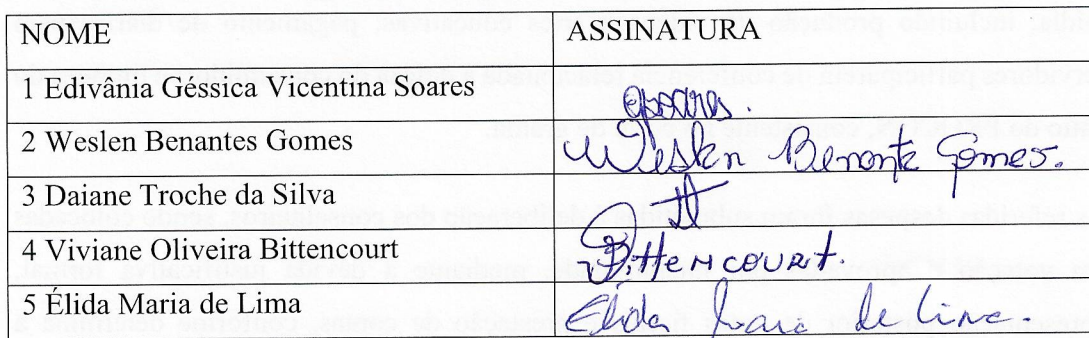 NOME ASSINATURA
1 Edivânia Géssica Vicentina Soares
2 Weslen Benantes Gomes Weslen Benante Gomes.
3 Daiane Troche da Silva
4 Viviane Oliveira Bittencourt Bittencourt.
5 Élida Maria de Lima Elida Maria de Lima.